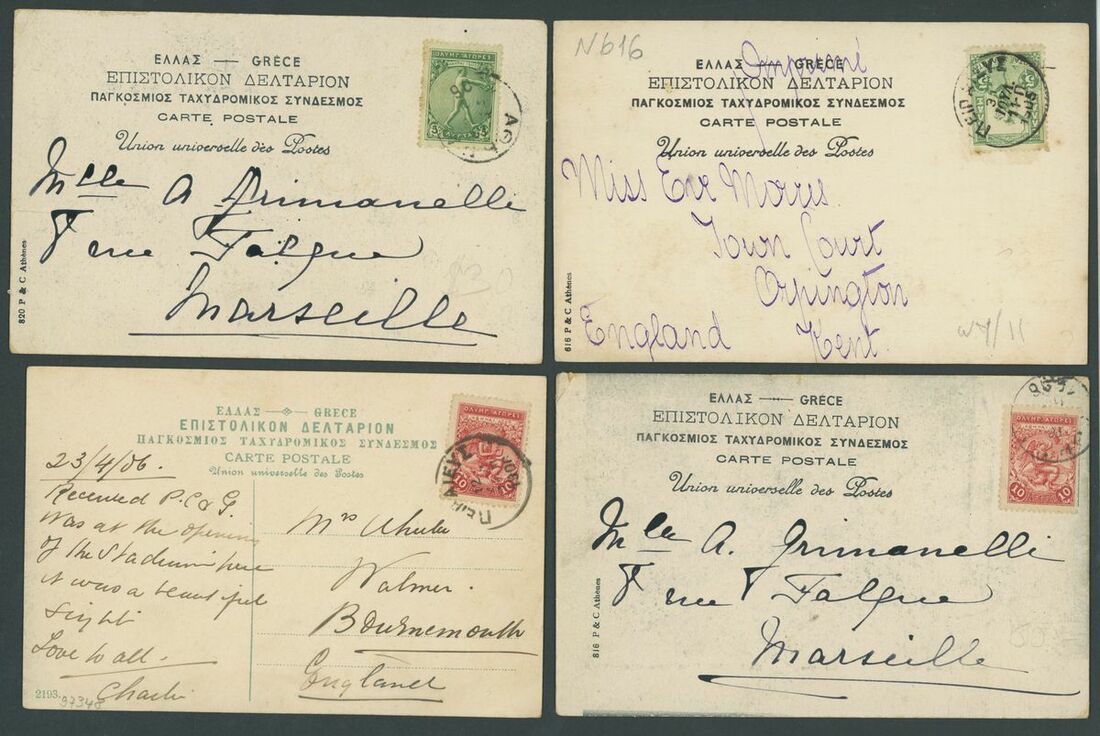 ΕΛΛΑΣ — GRÈCE
ΕΠΙΣΤΟΛΙΚΟΝ ΔΕΛΤΑΡΙΟΝ
ΠΑΓΚΟΣΜΙΟΣ ΤΑΧΥΔΡΟΜΙΚΟΣ ΣΥΝΔΕΣΜΟΣ
CARTE POSTALE
Union universelle des Postes
ΟΛΥΜΠ. ΑΓΩΝΕΣ
Mlle A Grimanelli
8 rue Falque
Marseille
820 P & C Athènes
N616
Imprimé
ΕΛΛΑΣ — GRÈCE
ΕΠΙΣΤΟΛΙΚΟΝ ΔΕΛΤΑΡΙΟΝ
ΠΑΓΚΟΣΜΙΟΣ ΤΑΧΥΔΡΟΜΙΚΟΣ ΣΥΝΔΕΣΜΟΣ
CARTE POSTALE
Union universelle des Postes
ΠΕΙΡΑΙΕΥΣ
Miss Eve Morris.
Town Court
Orpington
England Kent.
616 P & C Athènes
ΕΛΛΑΣ — GRECE
ΕΠΙΣΤΟΛΙΚΟΝ ΔΕΛΤΑΡΙΟΝ
ΠΑΓΚΟΣΜΙΟΣ ΤΑΧΥΔΡΟΜΙΚΟΣ ΣΥΝΔΕΣΜΟΣ
CARTE POSTALE
Union universelle des Postes
ΟΛΥΜΠ. ΑΓΩΝΕΣ
10 10
ΠΕΙΡΑΙΕΥΣ
23/4/06.
Received P.C. & G.
Was at the opening
of the Stadium here
it was a beautiful
sight
Love to all.
Charlie
Mrs
Walmer.
Bournemouth
England
2193.
97348
ΕΛΛΑΣ — GRÈCE
ΕΠΙΣΤΟΛΙΚΟΝ ΔΕΛΤΑΡΙΟΝ
ΠΑΓΚΟΣΜΙΟΣ ΤΑΧΥΔΡΟΜΙΚΟΣ ΣΥΝΔΕΣΜΟΣ
CARTE POSTALE
Union universelle des Postes
ΟΛΥΜΠ. ΑΓΩΝΕΣ
10 10
Mlle A. Grimanelli
8 rue Falque
Marseille
816 P & C Athènes